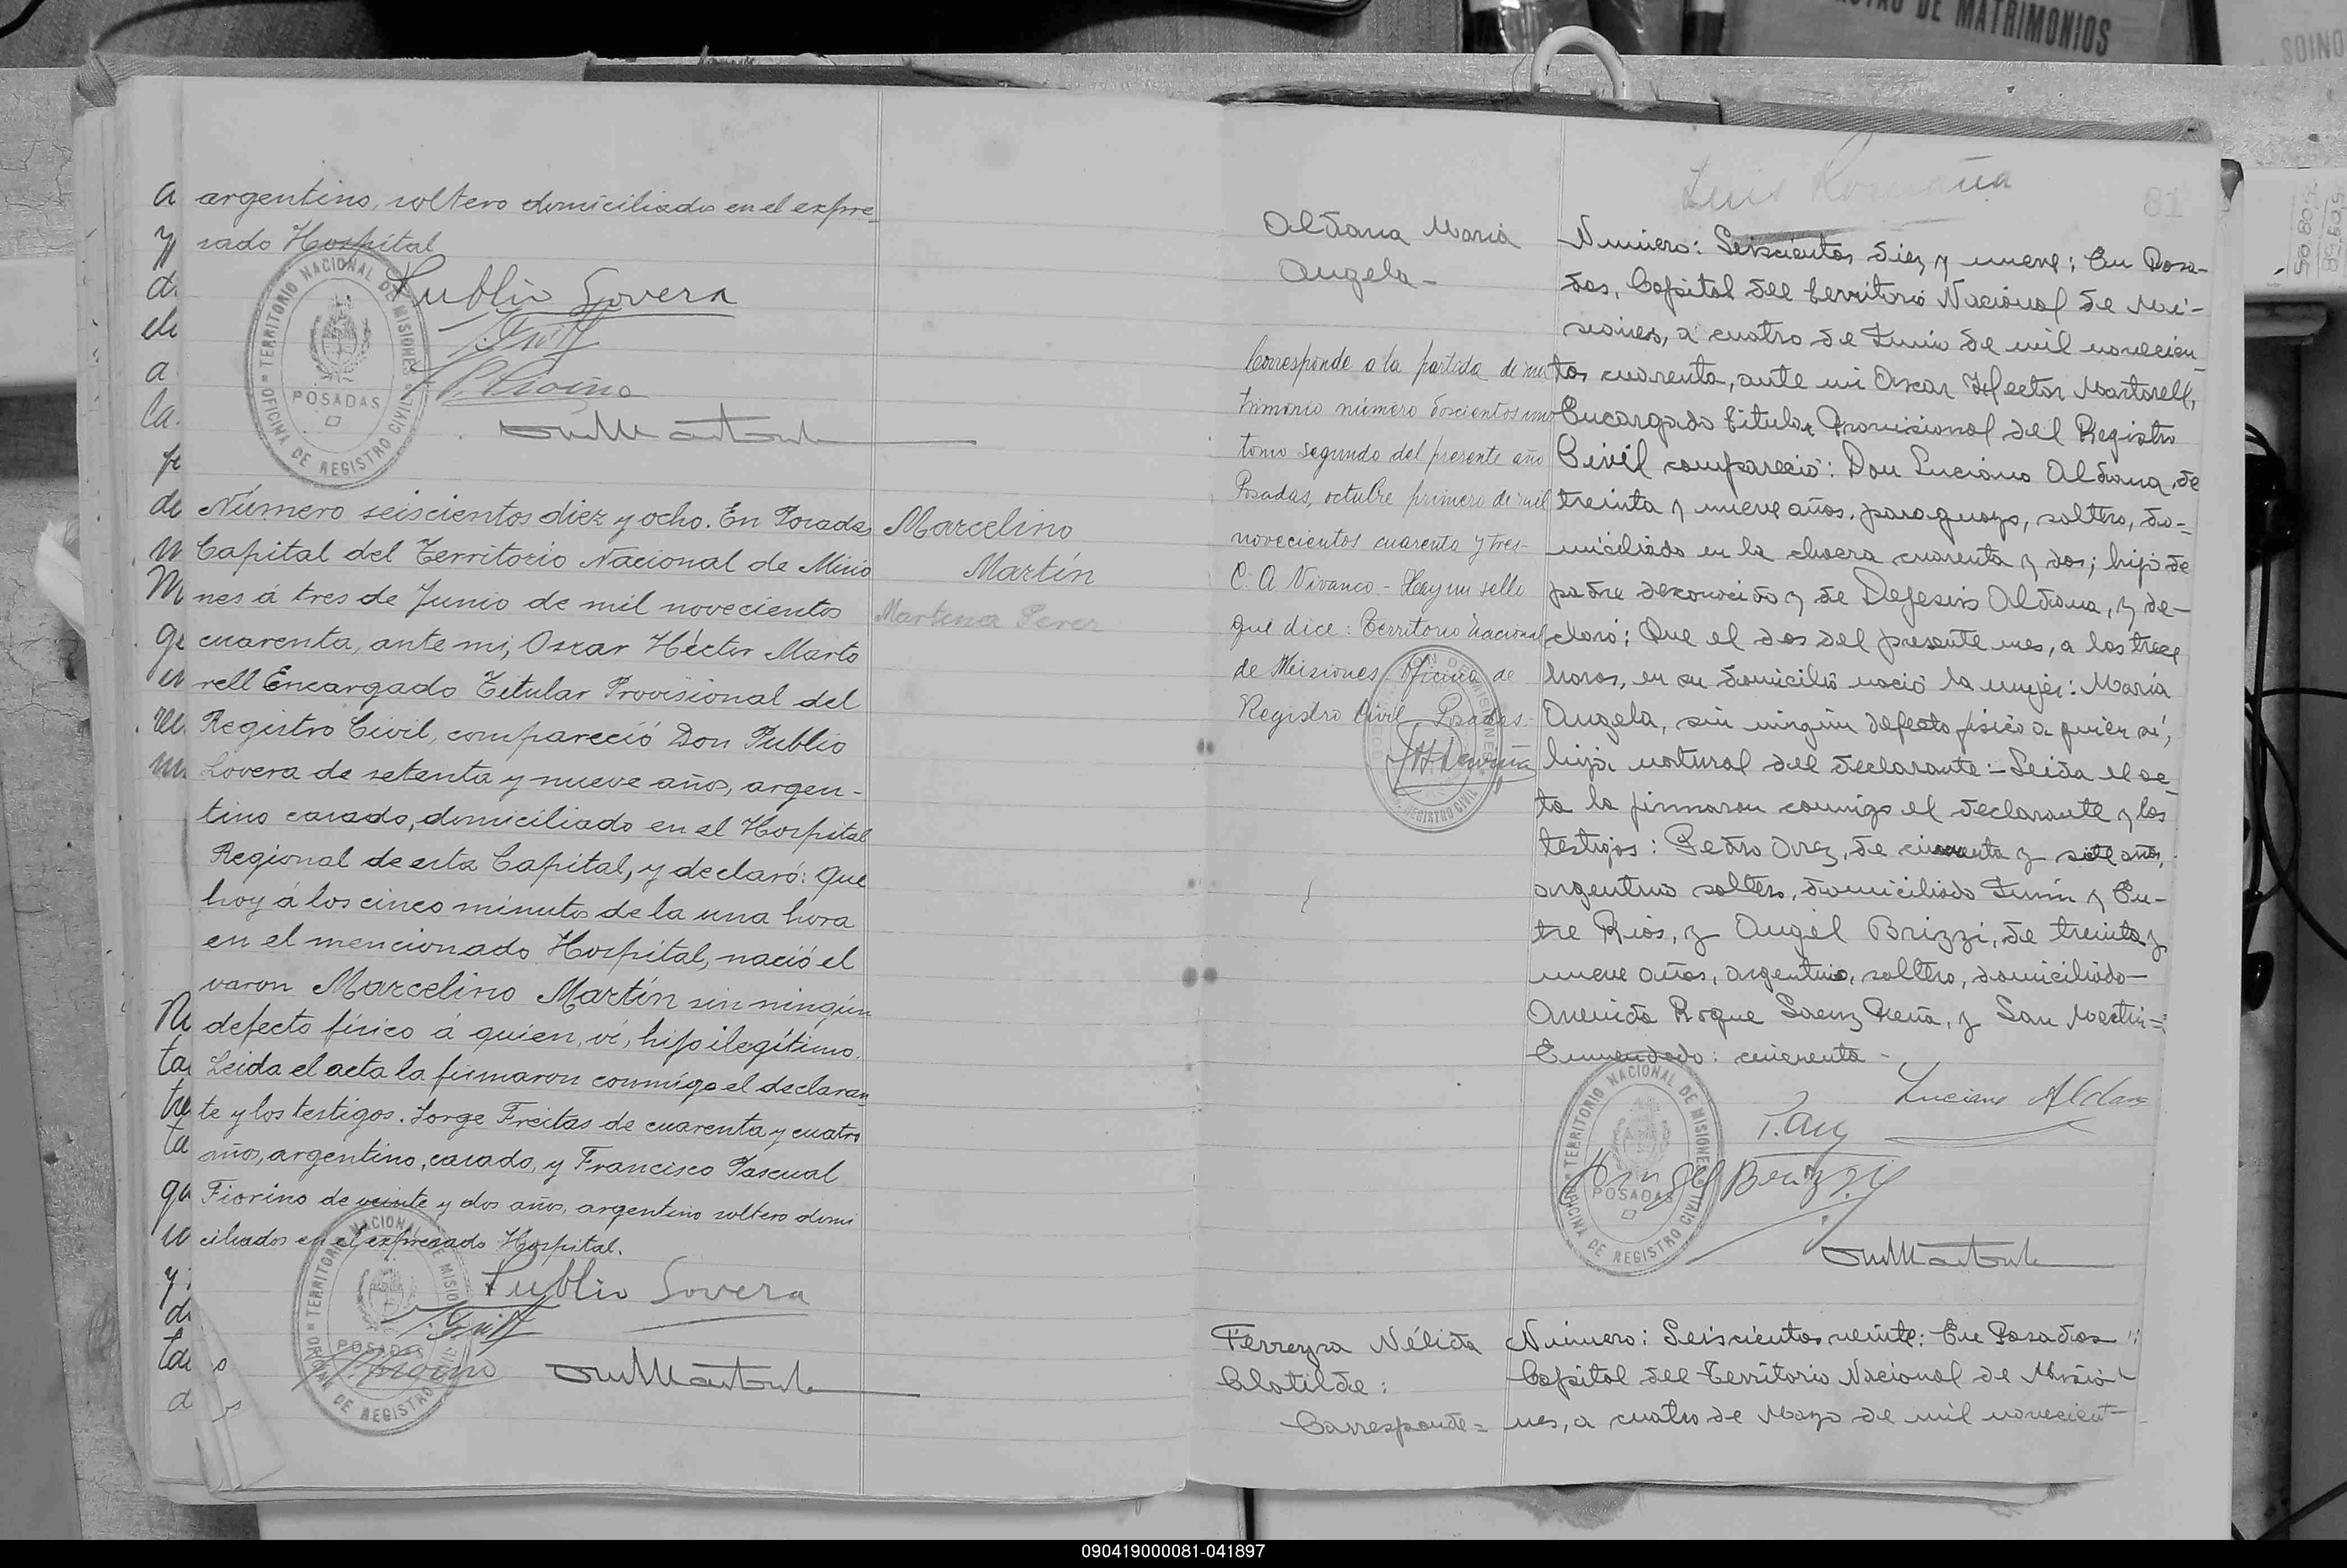 argentino, soltero domiciliado en el expre
sado Hospital
Publio Lovera
TERRITORIO NACIONAL DE MISIONES
POSADAS
OFICINA DE REGISTRO CIVIL
Número seiscientos diez y ocho. En Posadas
Capital del Territorio Nacional de Misio
nes á tres de Junio de mil novecientos
cuarenta, ante mi, Oscar Héctor Marto
rell Encargado Titular Provisional del
Registro Civil, compareció Don Publio
Lovera de setenta y nueve años, argen-
tino casado, domiciliado en el Hospital
Regional de esta Capital, y declaró: Que
hoy á los cinco minutos de la una hora
en el mencionado Hospital, nació el
varon Marcelino Martín sin ningún
defecto físico á quien, ví, hijo ilegítimo.
Leida el acta la firmaron conmigo el declaran
te y los testigos. Jorge Freitas de cuarenta y cuatro
años, argentino, casado, y Francisco Pascual
Fiorino de veinte y dos años, argentino soltero domi
ciliados en el expresado Hospital.
Publio Lovera
TERRITORIO NACIONAL DE MISIONES
POSADAS
OFICINA DE REGISTRO CIVIL
Marcelino
Martín
Martina Perez
Luis Romaña
81
Aldana Maria
Angela -
Corresponde a la partida de ma
trimonio número doscientos uno
tomo segundo del presente año
Posadas, octubre primero de mil
novecientos cuarenta y tres-
C. A Vivanco - Hay un sello
que dice: Territorio Nacional
de Misiones Oficina de
Registro Civil Posadas-
Número: Seiscientos diez y nueve: En Posa-
das, Capital del territorio Nacional de Mi-
siones, a cuatro de Junio de mil novecien-
tos cuarenta, ante mi Oscar Hector Martorell,
Encargado titular Provisional del Registro
Civil compareció: Don Luciano Aldana, de
treinta y nueve años, paraguayo, soltero, do-
miciliado en la chacra cuarenta y dos; hijo de
padre desconocido y de Aldana, y de-
claró: Que el dos del presente mes, a las trece
horas, en su domicilio nació la mujer: María
Angela, sin ningún defecto fisico a quien ví,
hija natural del declarante:- Leida el ac-
ta la firmaron conmigo el declarante y los
testigos: Pedro de cincuenta y siete años,
argentino soltero, domiciliado Junin y En-
tre Rios, y Angel Brizzi, de treinta y
nueve años, argentino, soltero, domiciliado-
Avenida Roque Saenz Peña, y San Martin=
Enmendado: cincuenta -
Luciano Aldana
Angel Brizzi
TERRITORIO NACIONAL DE MISIONES
POSADAS
OFICINA DE REGISTRO CIVIL
Ferreyra Nélida
Clotilde:
Corresponde=
Número: Seiscientos veinte: En Posadas
Capital del territorio Nacional de Misio-
nes, a cuatro de Mayo de mil novecient-
DE MATRIMONIOS
090419000081-041897